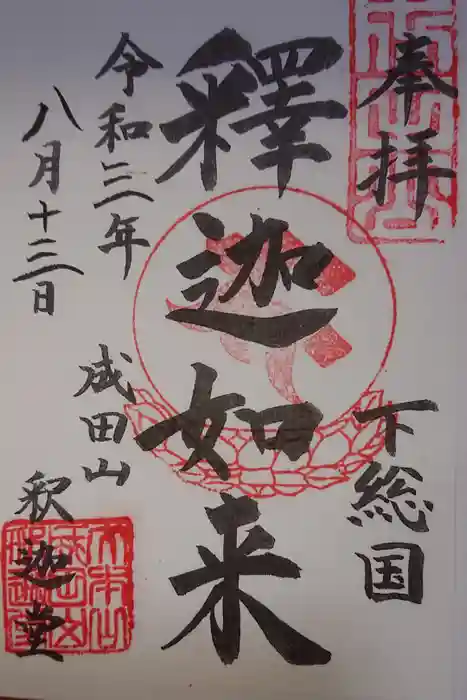 奉拝
下総国
釋迦如来
令和三年
八月十三日
成田山
釈迦堂